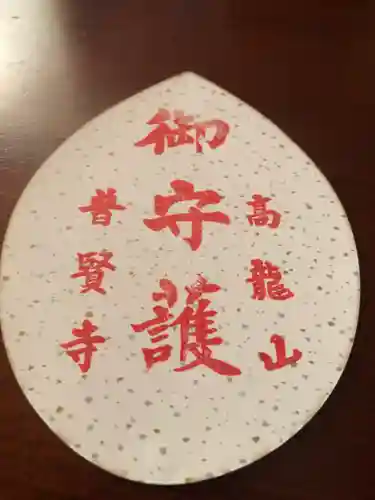 高龍山
御守護
普賢寺